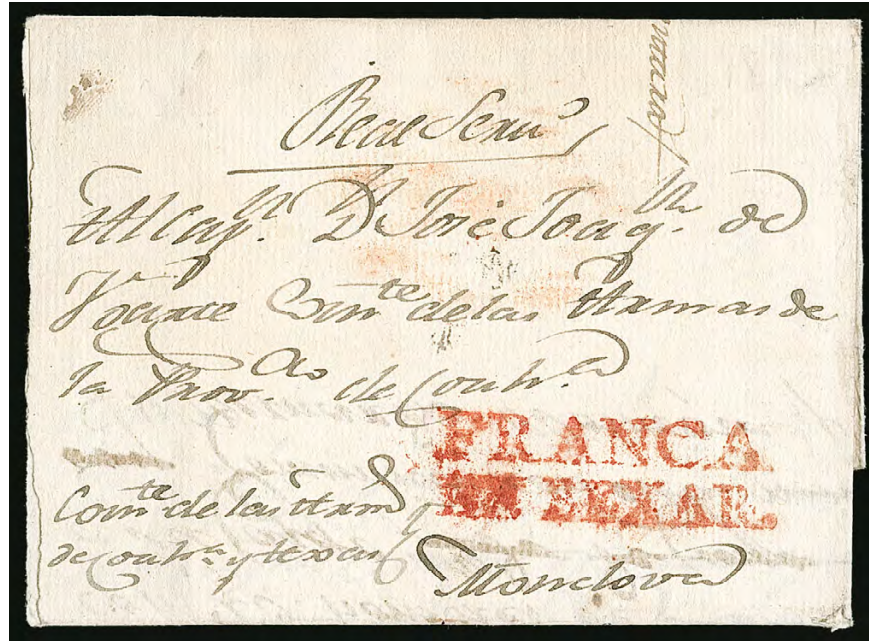 Real Serv.o
Al Cap.n D.n José Joaq.n de
Com.te de las Armas de
la Prov.a de Coah.a
FRANCA
EN BEXAR.
Com.te de las Arm.s
de Coah.a y Texas
Monclova